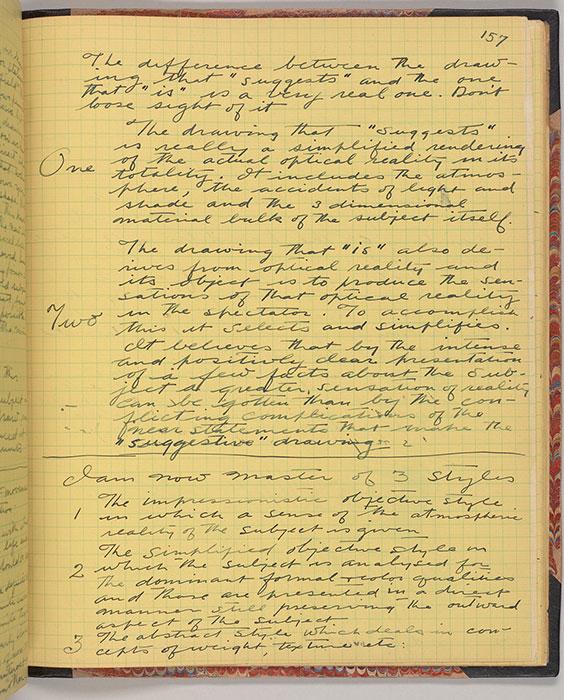 157
The difference between the draw-
ing that "suggests" and the one
that "is" is a very real one. Don't
loose sight of it
The drawing that "suggests"
is really a simplified rendering
One of the actual optical reality in its
totality. It includes the atmos-
phere, the accidents of light and
shade and the 3 dimensional
material bulk of the subject itself.
The drawing that "is" also de-
rives from optical reality and
its object is to produce the sen-
sations of that optical reality
Two in the spectator. To accomplish
this it selects and simplifies.
It believes that by the intense
and positively clear presentation
of a few facts about the sub-
ject a greater sensation of reality
can be gotten than by the con-
flicting complications of the
near statements that make the
"suggestive" drawing
I am now master of 3 styles
1 The impressionistic objective style
in which a sense of the atmospheric
reality of the subject is given
The simplified objective style in
2 which the subject is analysed for
the dominant formal + color qualities
and those are presented in a direct
manner still preserving the outward
aspect of the subject
3 The abstract style which deals in con-
cepts of weight, texture etc.